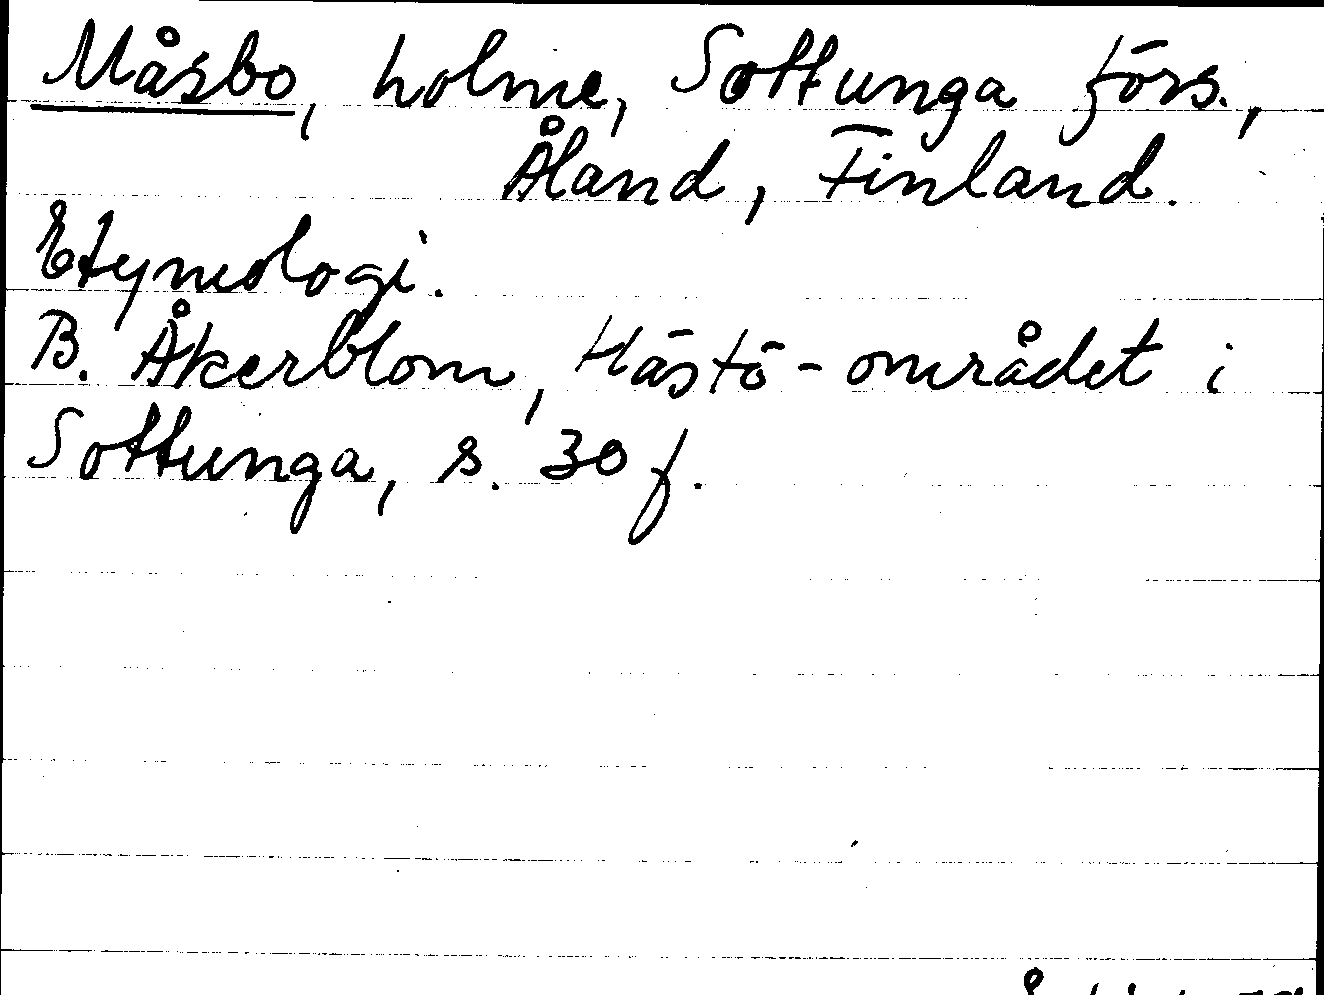 Måsbo, holme, Sottunga förs.,
Åland, Finland.
Etymologi.
B. Åkerblom, Hästö-området i
Sottunga, s. 30 f.